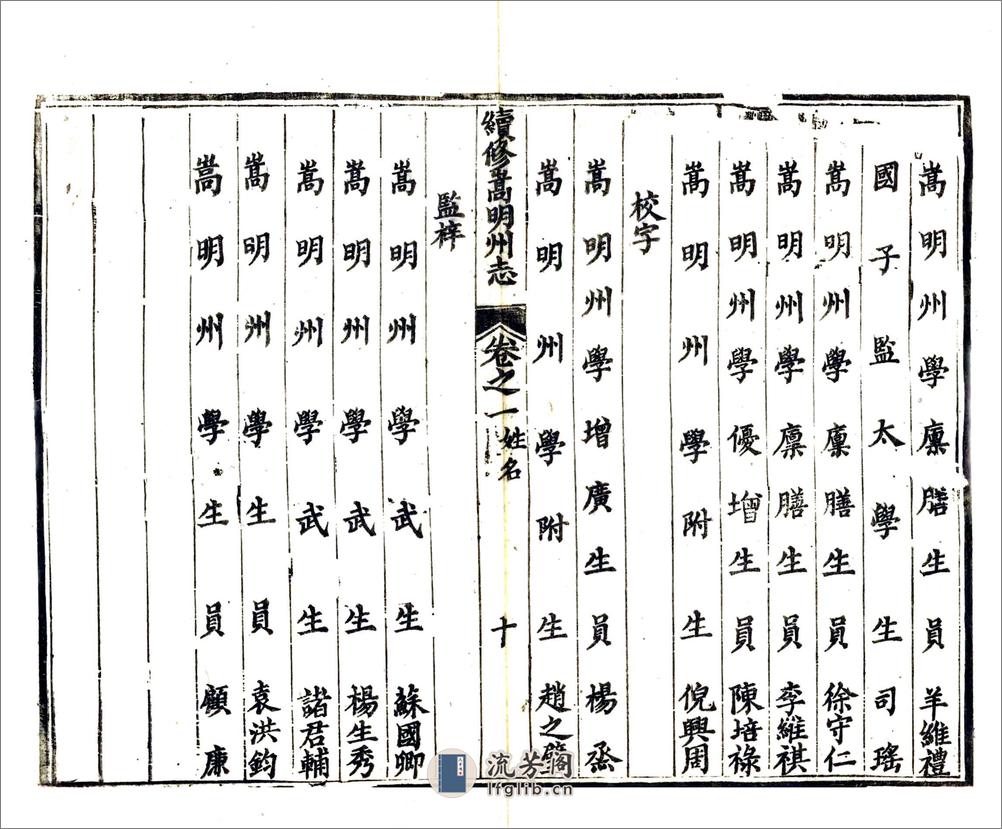 嵩明州學廩膳生員羊維禮
國子監太學生司瑤
嵩明州學廩膳生員徐守仁
嵩明州學廩膳生員李維祺
嵩明州學優增生員陳培祿
嵩明州學附生倪興周
校字
嵩明州學增廣生員楊烝
嵩明州學附生趙之
續修嵩明州志 卷之一 姓名 十
監梓
嵩明州學武生蘇國卿
嵩明州學武生楊生秀
嵩明州學武生諸君輔
嵩明州學生員袁洪鈞
嵩明州學生員顧康
流芳閣
lfglib.cn